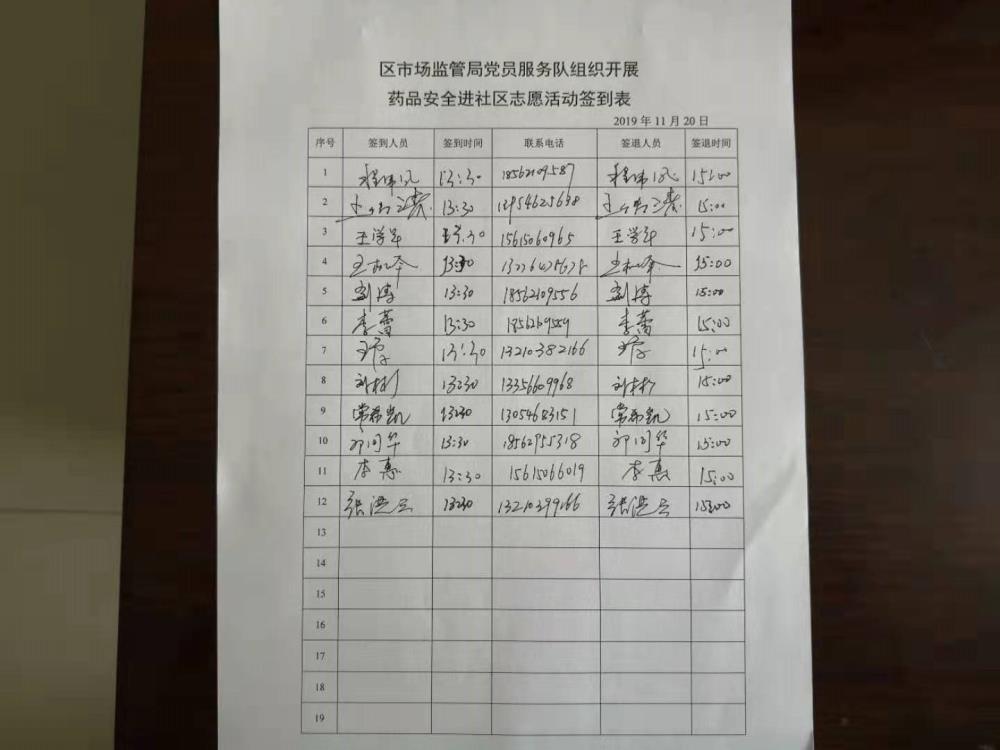 区市场监管局党员服务队组织开展
药品安全进社区志愿活动签到表
2019年11月20日
序号 签到人员 签到时间 联系电话 签退人员 签退时间
1 程伟凤 13:30 18562109587 程伟凤 15:00
2 13:30 13954625638 15:00
3 王学军 13:30 15615060965 王学军 15:00
4 13:30 15:00
5 刘涛 13:30 18562109556 刘涛 15:00
6 李蕾 13:30 李蕾 15:00
7 13:30 13210382166 15:00
8 刘彬 13:30 13356609968 刘彬 15:00
9 常希凯 13:30 13054683151 常希凯 15:00
10 13:30 18562955318 15:00
11 李惠 13:30 15615066019 李惠 15:00
12 张洪云 13:30 13210399166 张洪云 15:00
13
14
15
16
17
18
19